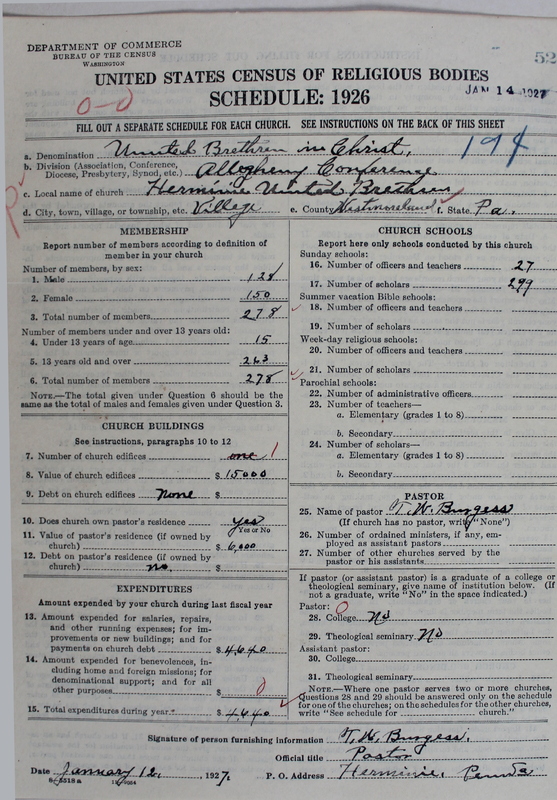 DEPARTMENT OF COMMERCE
BUREAU OF THE CENSUS
WASHINGTON
52
UNITED STATES CENSUS OF RELIGIOUS BODIES
JAN 14 1927
SCHEDULE: 1926
0-0
FILL OUT A SEPARATE SCHEDULE FOR EACH CHURCH. SEE INSTRUCTIONS ON THE BACK OF THIS SHEET
194
a. Denomination United Brethren in Christ,
b. Division (Association, Conference, Diocese, Presbytery, Synod, etc.) Allegheny Conference
c. Local name of church Herminie United Brethren
d. City, town, village, or township, etc. Village e. County Westmoreland f. State Pa.
MEMBERSHIP
Report number of members according to definition of
member in your church
Number of members, by sex:
1. Male 128
2. Female 150
3. Total number of members 278
Number of members under and over 13 years old:
4. Under 13 years of age 15
5. 13 years old and over 263
6. Total number of members 278
NOTE.—The total given under Question 6 should be the
same as the total of males and females given under Question 3.
CHURCH BUILDINGS
See instructions, paragraphs 10 to 12
7. Number of church edifices one 1
8. Value of church edifices $ 15000
9. Debt on church edifices None $
10. Does church own pastor's residence yes
Yes or No
11. Value of pastor's residence (if owned by
church) $ 6,000
12. Debt on pastor's residence (if owned by
church) no. $
EXPENDITURES
Amount expended by your church during last fiscal year
13. Amount expended for salaries, repairs,
and other running expenses; for im-
provements or new buildings; and for
payments on church debt $ 4640
14. Amount expended for benevolences, in-
cluding home and foreign missions; for
denominational support; and for all
other purposes $ 0
15. Total expenditures during year $ 4640
CHURCH SCHOOLS
Report here only schools conducted by this church
Sunday schools:
16. Number of officers and teachers 27
17. Number of scholars 299
Summer vacation Bible schools:
18. Number of officers and teachers
19. Number of scholars
Week-day religious schools:
20. Number of officers and teachers
21. Number of scholars
Parochial schools:
22. Number of administrative officers
23. Number of teachers—
a. Elementary (grades 1 to 8)
b. Secondary
24. Number of scholars—
a. Elementary (grades 1 to 8)
b. Secondary
PASTOR
25. Name of pastor T. W. Burgess
(If church has no pastor, write "None")
26. Number of ordained ministers, if any, em-
ployed as assistant pastors
27. Number of other churches served by the
pastor or his assistants
If pastor (or assistant pastor) is a graduate of a college or
theological seminary, give name of institution below. (If
not a graduate, write "No" in the space indicated.)
Pastor: 0
28. College No
29. Theological seminary No
Assistant pastor:
30. College
31. Theological seminary
NOTE.—Where one pastor serves two or more churches,
Questions 28 and 29 should be answered only on the schedule
for one of the churches; on the schedules for the other churches,
write "See schedule for church."
Signature of person furnishing information T. W. Burgess.
Official title Pastor
Date January 12, 1927. P. O. Address Herminie, Penna